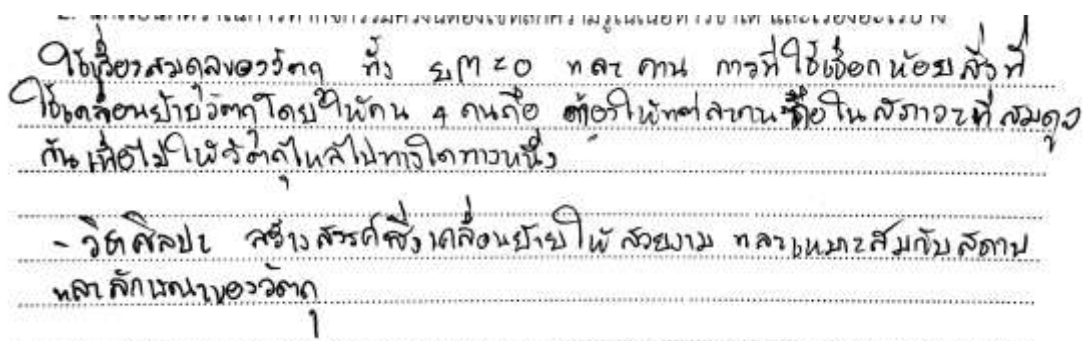 ใช้เรื่องสมดุลของวัตถุ ทั้ง ΣM=0 และ คาน การที่ใช้เชือกห้อยสิ่งที่
ใช้เคลื่อนย้ายวัตถุโดยให้คน 4 คนถือ ต้องให้แต่ละคนถือในสภาวะที่สมดุล
กัน เพื่อไม่ให้วัตถุไหลไปทางใดทางหนึ่ง
- วิชาศิลปะ สร้างสรรค์สิ่งเคลื่อนย้ายให้สวยงาม และเหมาะสมกับสภาพ
และลักษณะของวัตถุ